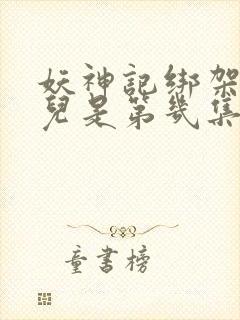 妖神記綁架
兒是第幾集
童書榜